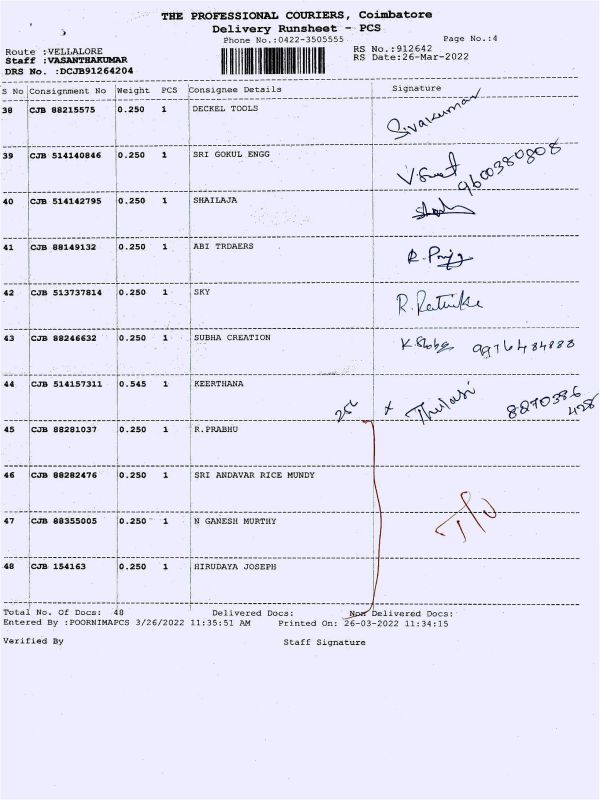 THE PROFESSIONAL COURIERS, Coimbatore
Delivery Runsheet - PCS
Phone No.:0422-3505555 Page No.:4
Route :VELLALORE RS No.:912642
Staff :VASANTHAKUMAR RS Date:26-Mar-2022
DRS No. :DCJB91264204
S No Consignment No Weight PCS Consignee Details Signature
38 CJB 88215575 0.250 1 DECKEL TOOLS Sivakumar
39 CJB 514140846 0.250 1 SRI GOKUL ENGG 9600380808
40 CJB 514142795 0.250 1 SHAILAJA
41 CJB 88149132 0.250 1 ABI TRDAERS
42 CJB 513737814 0.250 1 SKY
43 CJB 88246632 0.250 1 SUBHA CREATION 9976484888
44 CJB 514157311 0.545 1 KEERTHANA Thulasi 8870386
428
45 CJB 88281037 0.250 1 R.PRABHU
46 CJB 88282476 0.250 1 SRI ANDAVAR RICE MUNDY
47 CJB 88355005 0.250 1 N GANESH MURTHY
48 CJB 154163 0.250 1 HIRUDAYA JOSEPH
Total No. Of Docs: 48 Delivered Docs: Non Delivered Docs:
Entered By :POORNIMAPCS 3/26/2022 11:35:51 AM Printed On: 26-03-2022 11:34:15
Verified By Staff Signature